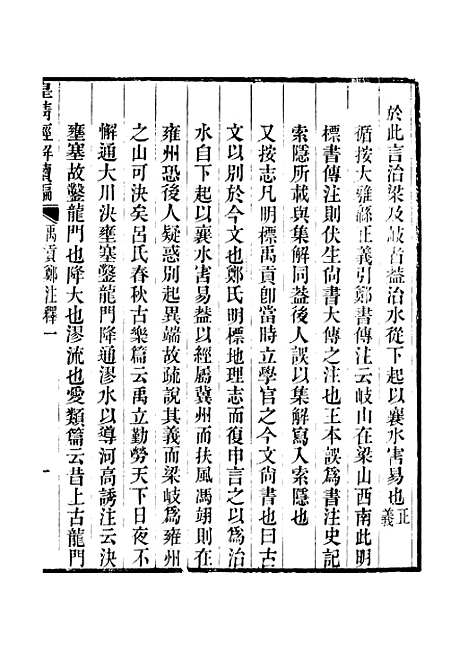 於此言治梁及岐者葢治水從下起以襄水害易也正義
循按大雅緜正義引鄭書傳注云岐山在梁山西南此明
標書傳注則伏生尚書大傳之注也王本誤爲書注史記
索隱所載與集解同葢後人誤以集解寫入索隱也
又按志凡明標禹貢卽當時立學官之今文尚書也曰古
文以別於今文也鄭氏明標地理志而復申言之以爲治
水自下起以襄水害易葢以經屬冀州而扶風馮翊則在
雍州恐後人疑惑別起異端故疏說其義而梁岐爲雍州
之山可決矣呂氏春秋古樂篇云禹立勤勞天下日夜不
懈通大川決壅塞鑿龍門降通漻水以導河高誘注云決
壅塞故鑿龍門也降大也漻流也愛類篇云昔上古龍門
皇清經解續編
禹貢鄭注釋一
一